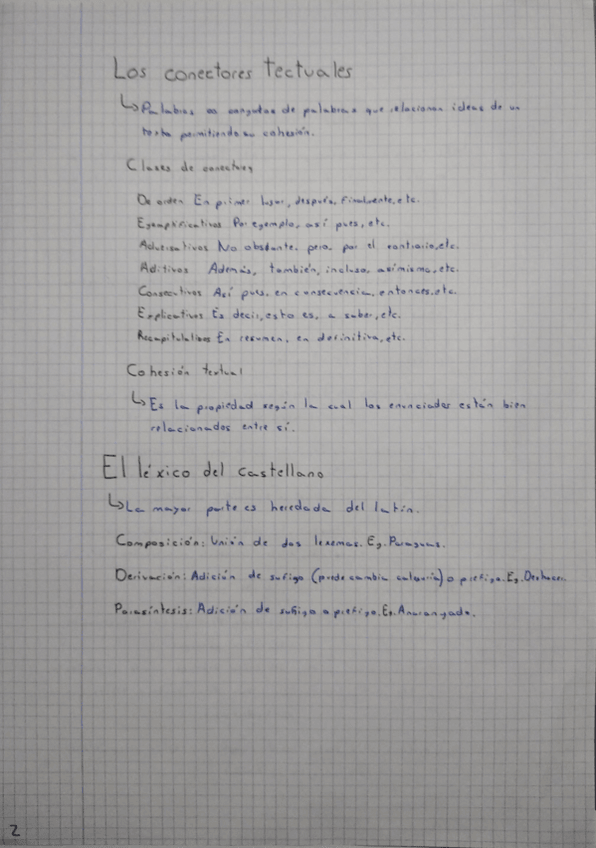 Los conectores tectuales
↳ Palabras o congutos de palabras que relacionan ideas de un
texto permitiendo su cohesión.
Clases de conectores
De orden En primer lugar, después, finalmente, etc.
Egemplificativos Por egemplo, así pues, etc.
Adversativos No obstante, pero, por el contrario, etc.
Aditivos Además, también, incluso, asímismo, etc.
Consecutivos Así pues, en consecuencia, entonces, etc.
Explicativos Es decir, esto es, a saber, etc.
Recapitulativos En resumen, en definitiva, etc.
Cohesión textual
↳ Es la propiedad según la cual los enunciados están bien
relacionados entre sí.
El léxico del castellano
↳ La mayor parte es heredada del latín.
Composición: Unión de dos lexemas. Eg. Paraguas.
Derivación: Adición de sufigo (puede cambia categoría) o prefigo. Eg. Deshacer.
Parasíntesis: Adición de sufigo o prefigo. Eg. Anarangado.
2